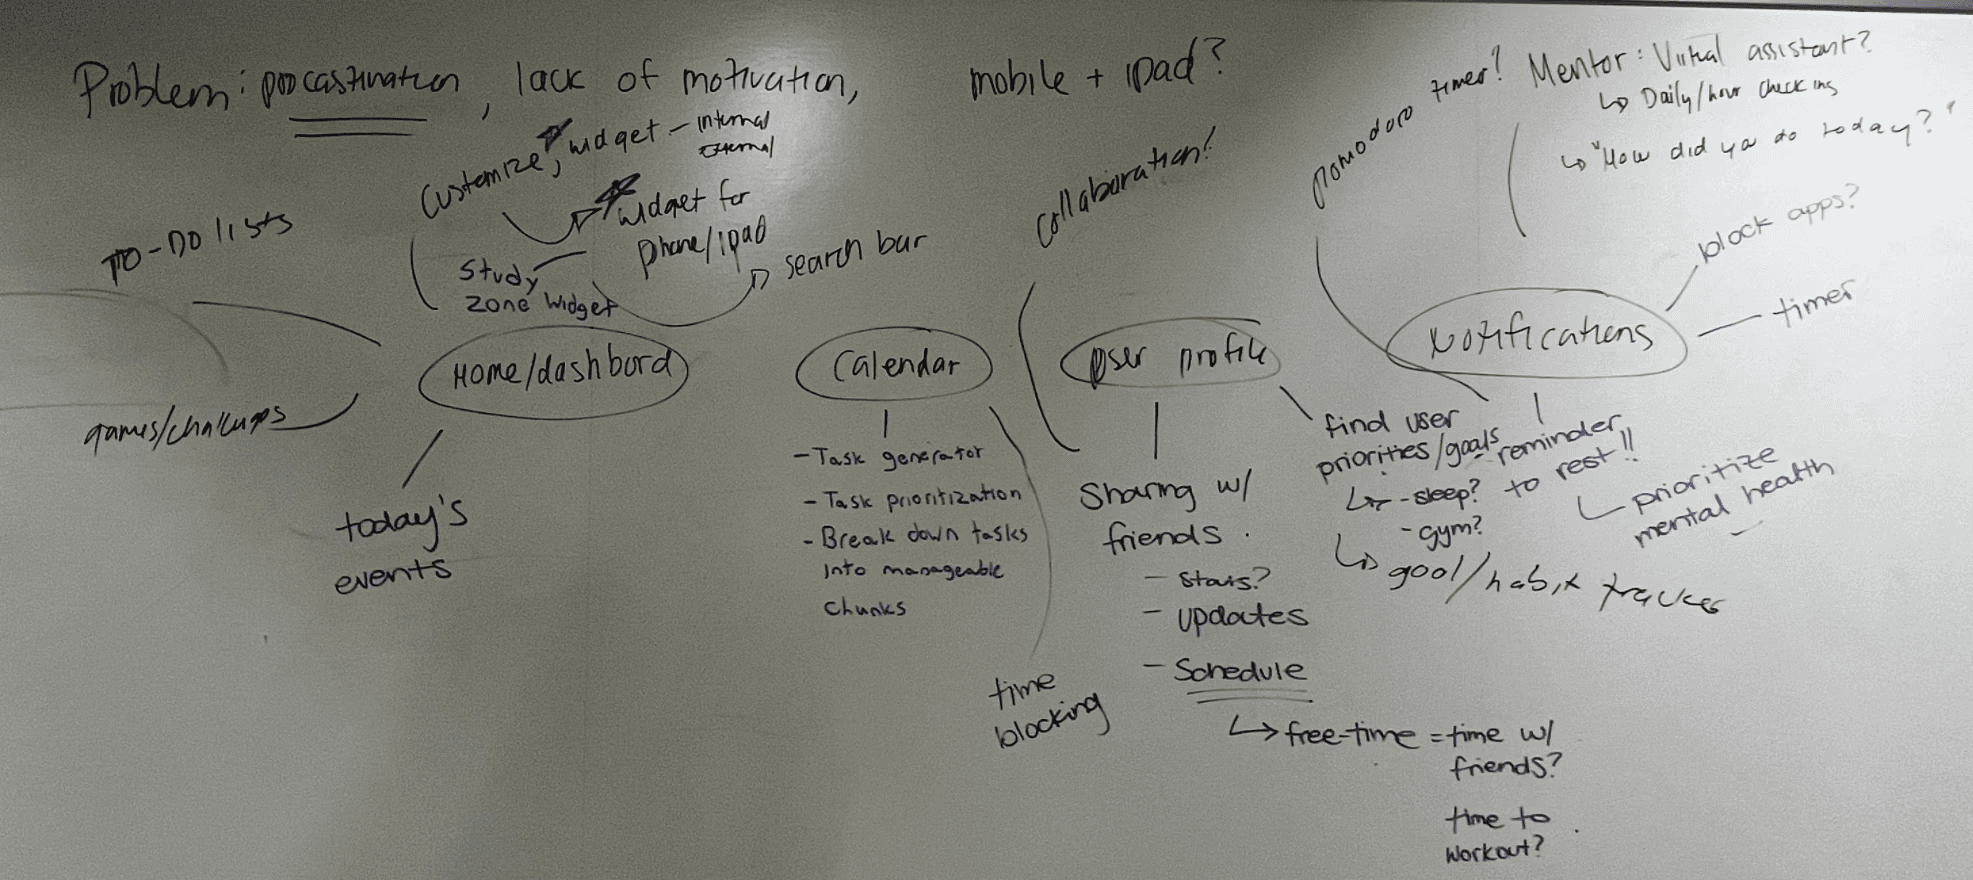 Problem: procastination, lack of motivation,
mobile + ipad?
pomodoro timer?
Mentor: Virtual assistant?
↳ Daily/hour check ins
↳ "How did ya do today?"
Customize, widget - internal
external
widget for
phone/ipad
study
zone widget
search bar
TO-DO lists
collaboration!
block apps?
timer
Home/dashbord
Calendar
User profile
Notifications
games/challenges
today's
events
- Task generator
- Task prioritization
- Break down tasks
into manageable
chunks
time
blocking
Sharing w/
friends.
- stats?
- updates
- Schedule
↳ free-time = time w/
friends?
time to
workout?
find user
priorities/goals
↳ - sleep?
- gym?
↳ goal/habit tracker
reminder
to rest!!
prioritize
mental health